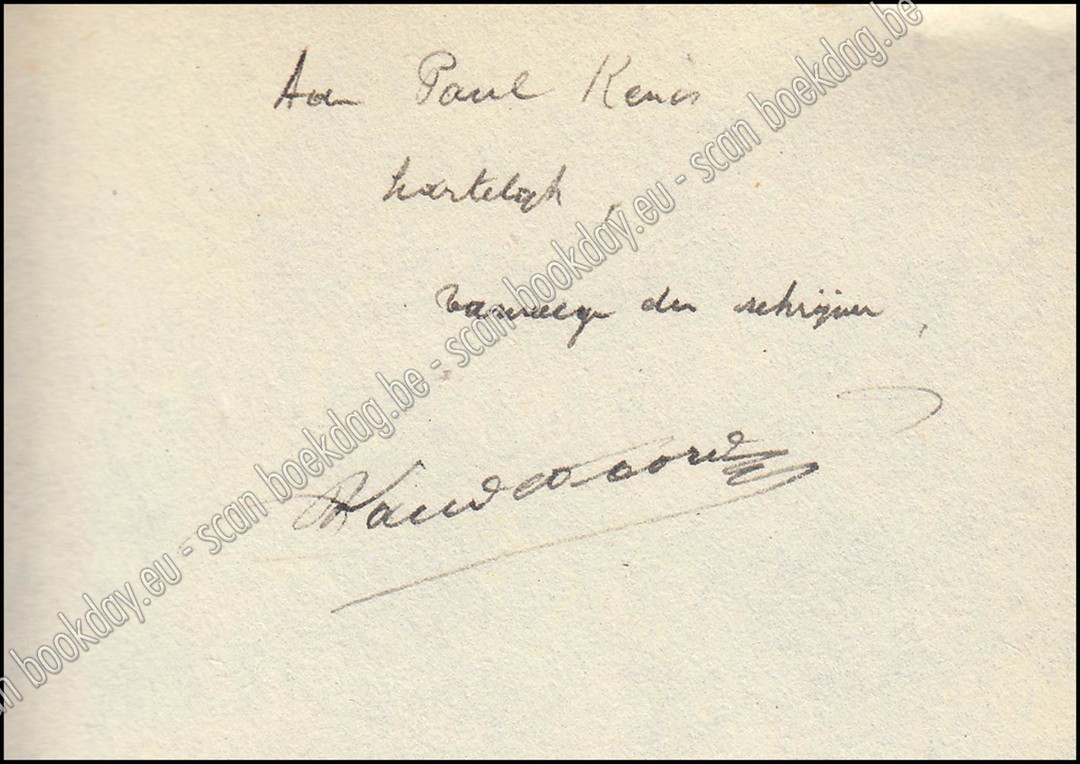 Aan Paul Kenis
hartelijk,
vanwege den schrijver,
scan bookday.eu - scan boekdag.be - scan bookday.eu - scan boekdag.be